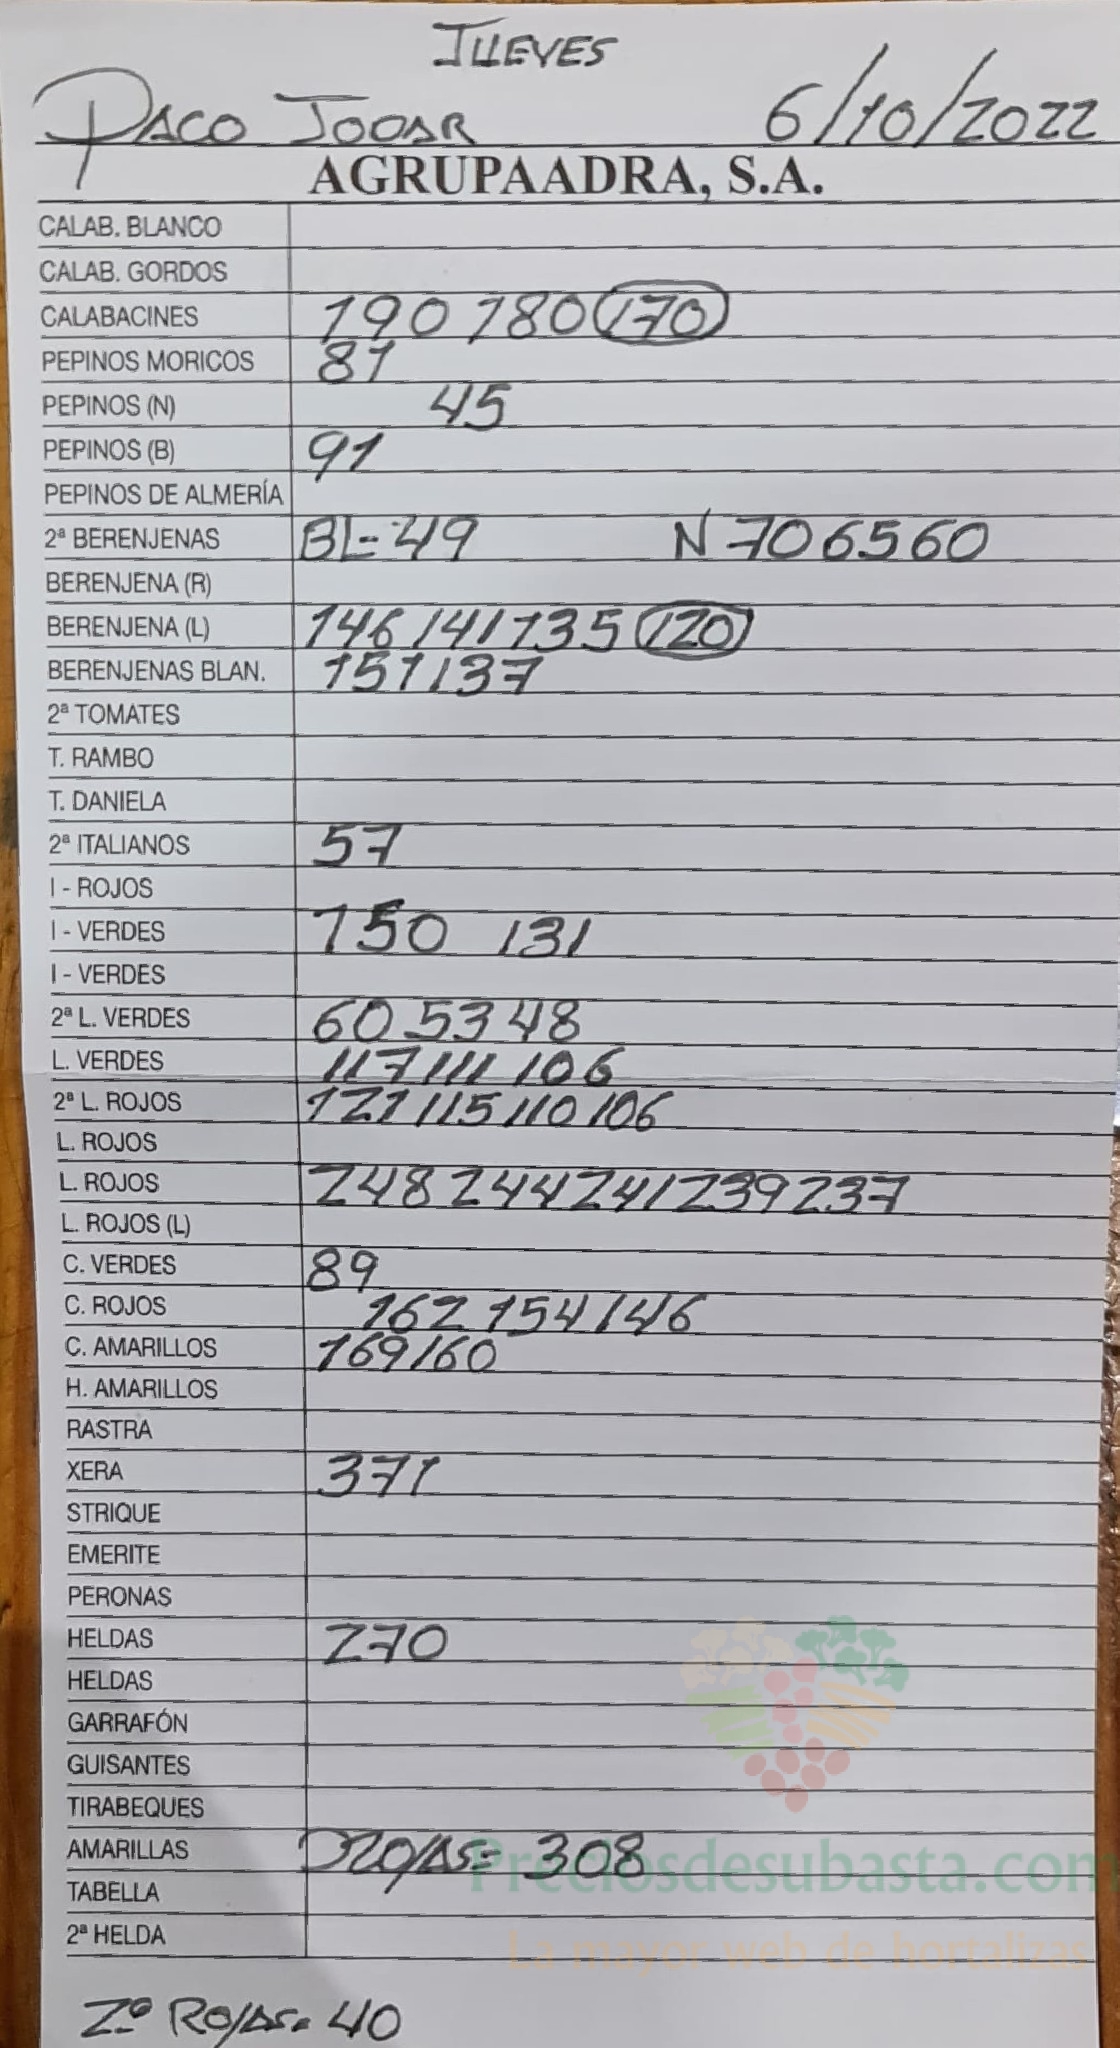 JUEVES
PACO JODAR 6/10/2022
AGRUPAADRA, S.A.
CALAB. BLANCO
CALAB. GORDOS
CALABACINES 190 180 170
PEPINOS MORICOS 81
PEPINOS (N) 45
PEPINOS (B) 91
PEPINOS DE ALMERÍA
2ª BERENJENAS BL=49 N 70 65 60
BERENJENA (R)
BERENJENA (L) 146 141 135 120
BERENJENAS BLAN. 151 137
2ª TOMATES
T. RAMBO
T. DANIELA
2ª ITALIANOS 57
I - ROJOS
I - VERDES 150 131
I - VERDES
2ª L. VERDES 60 53 48
L. VERDES 117 111 106
2ª L. ROJOS 121 115 110 106
L. ROJOS
L. ROJOS 248 244 241 239 237
L. ROJOS (L)
C. VERDES 89
C. ROJOS 162 154 146
C. AMARILLOS 169 160
H. AMARILLOS
RASTRA
XERA 371
STRIQUE
EMERITE
PERONAS
HELDAS 270
HELDAS
GARRAFÓN
GUISANTES
TIRABEQUES
AMARILLAS ROJAS= 308
Preciosdesubasta.com
TABELLA
2ª HELDA
La mayor web de hortalizas
2º ROJAS= 40